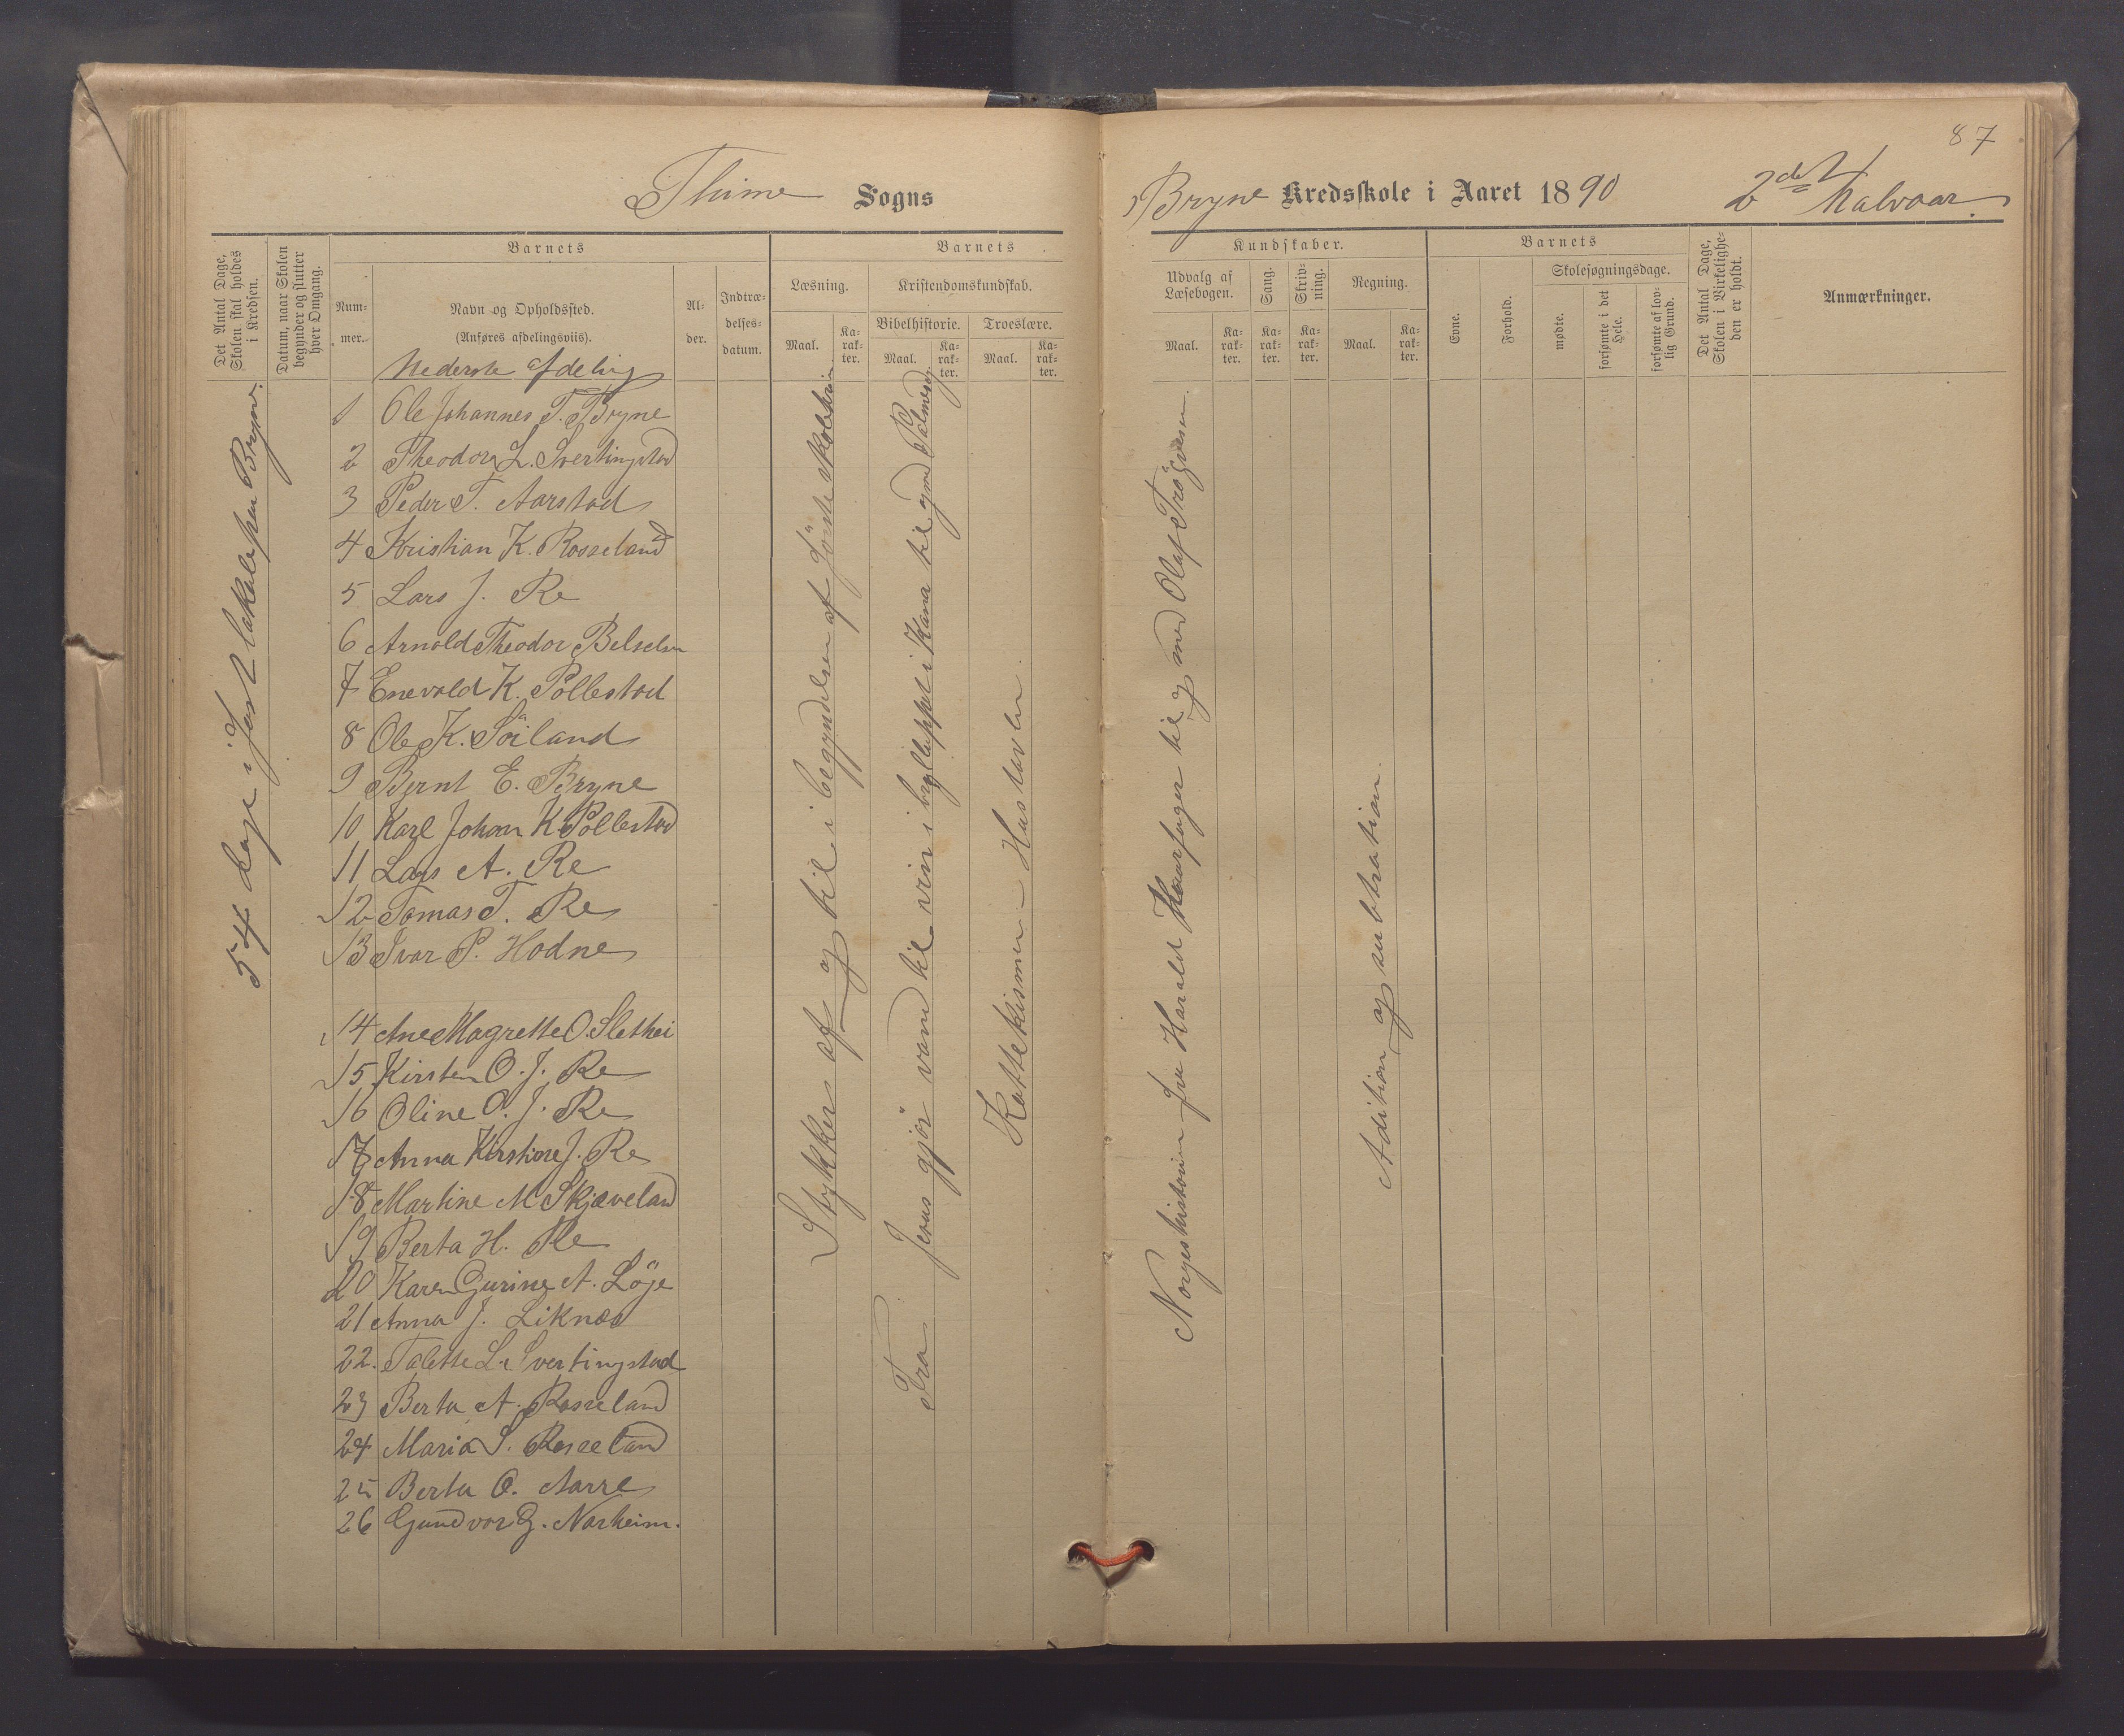 87
Thime Sogns
Bryne Kredsskole i Aaret 1890 2det halvaar.
Det Antal Dage, Skolen skal holdes i Kredsen.
Datum, naar Skolen begynder og slutter hver Omgang.
Barnets
Nummer.
Navn og Opholdssted.
(Anføres afdelingsviis).
Alder.
Indtrædelsesdatum.
Barnets
Læsning.
Maal.
Karakter.
Kristendomskundskab.
Bibelhistorie.
Maal.
Karakter.
Troeslære.
Maal.
Karakter.
Kundskaber.
Udvalg af Læsebogen.
Maal.
Karakter.
Sang.
Karakter.
Skrivning.
Karakter.
Regning.
Maal.
Karakter.
Barnets
Evne.
Forhold.
Skolesøgningsdage.
mødte.
forsømte i det Hele.
forsømte af lovlig Grund.
Det Antal Dage, Skolen i Virkeligheden er holdt.
Anmærkninger.
Nederste afdeling
54 dage i fast lokale paa Bryne.
1 Ole Johannes T. Bryne
2 Theodor L. Svertingstad
3 Peder T. Aarstad
4 Kristian K. Rosseland
5 Lars J. Re
6 Arnold Theodor Belselm
7 Enevald K. Pollestad
8 Ole K. Söiland
9 Bernt E. Bryne
10 Karl Johan K. Pollestad
11 Lars A. Re
12 Tomas T. Re
13 Ivar P. Hodne
14 Ane Magrette O. Slethei
15 Kirsten O. J. Re
16 Oline O. J. Re
17 Anna Kirstine J. Re
18 Martine M Skjæveland
19 Berta H. Re
20 Karen Gurine A. Löge
21 Anna J. Liknæs
22. Talette L. Svertingstad
23 Berta A. Rosseland
24 Maria S. Rosseland
25 Berta O. Aarre
26 Gundvor G. Norheim.
Stykker af og til i begyndelsen af förste skoletrin
Fra Jesus gjör vand til vin i brylluppet i Kana til og med Palmesöndag
Kattekismen - Hustavlen.
Norgeshistorien fra Harald Haarfager til og med Olaf Trögvesen.
Adition og subtration.